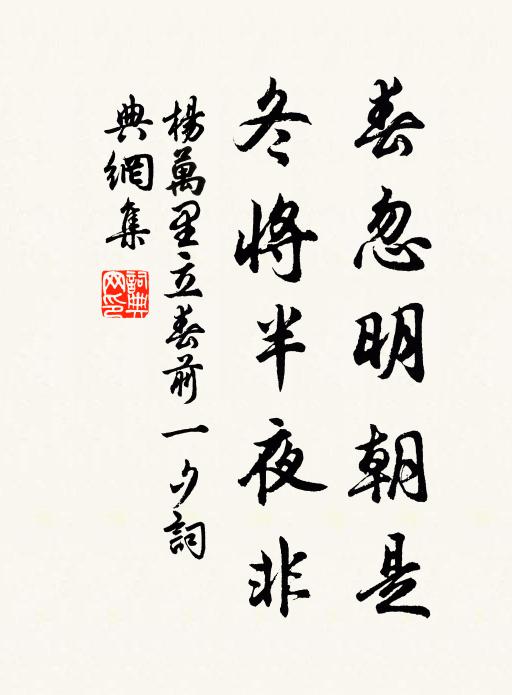 春忽明朝是
冬將半夜非
楊萬里立春前一夕詞
典網集
詞典網印